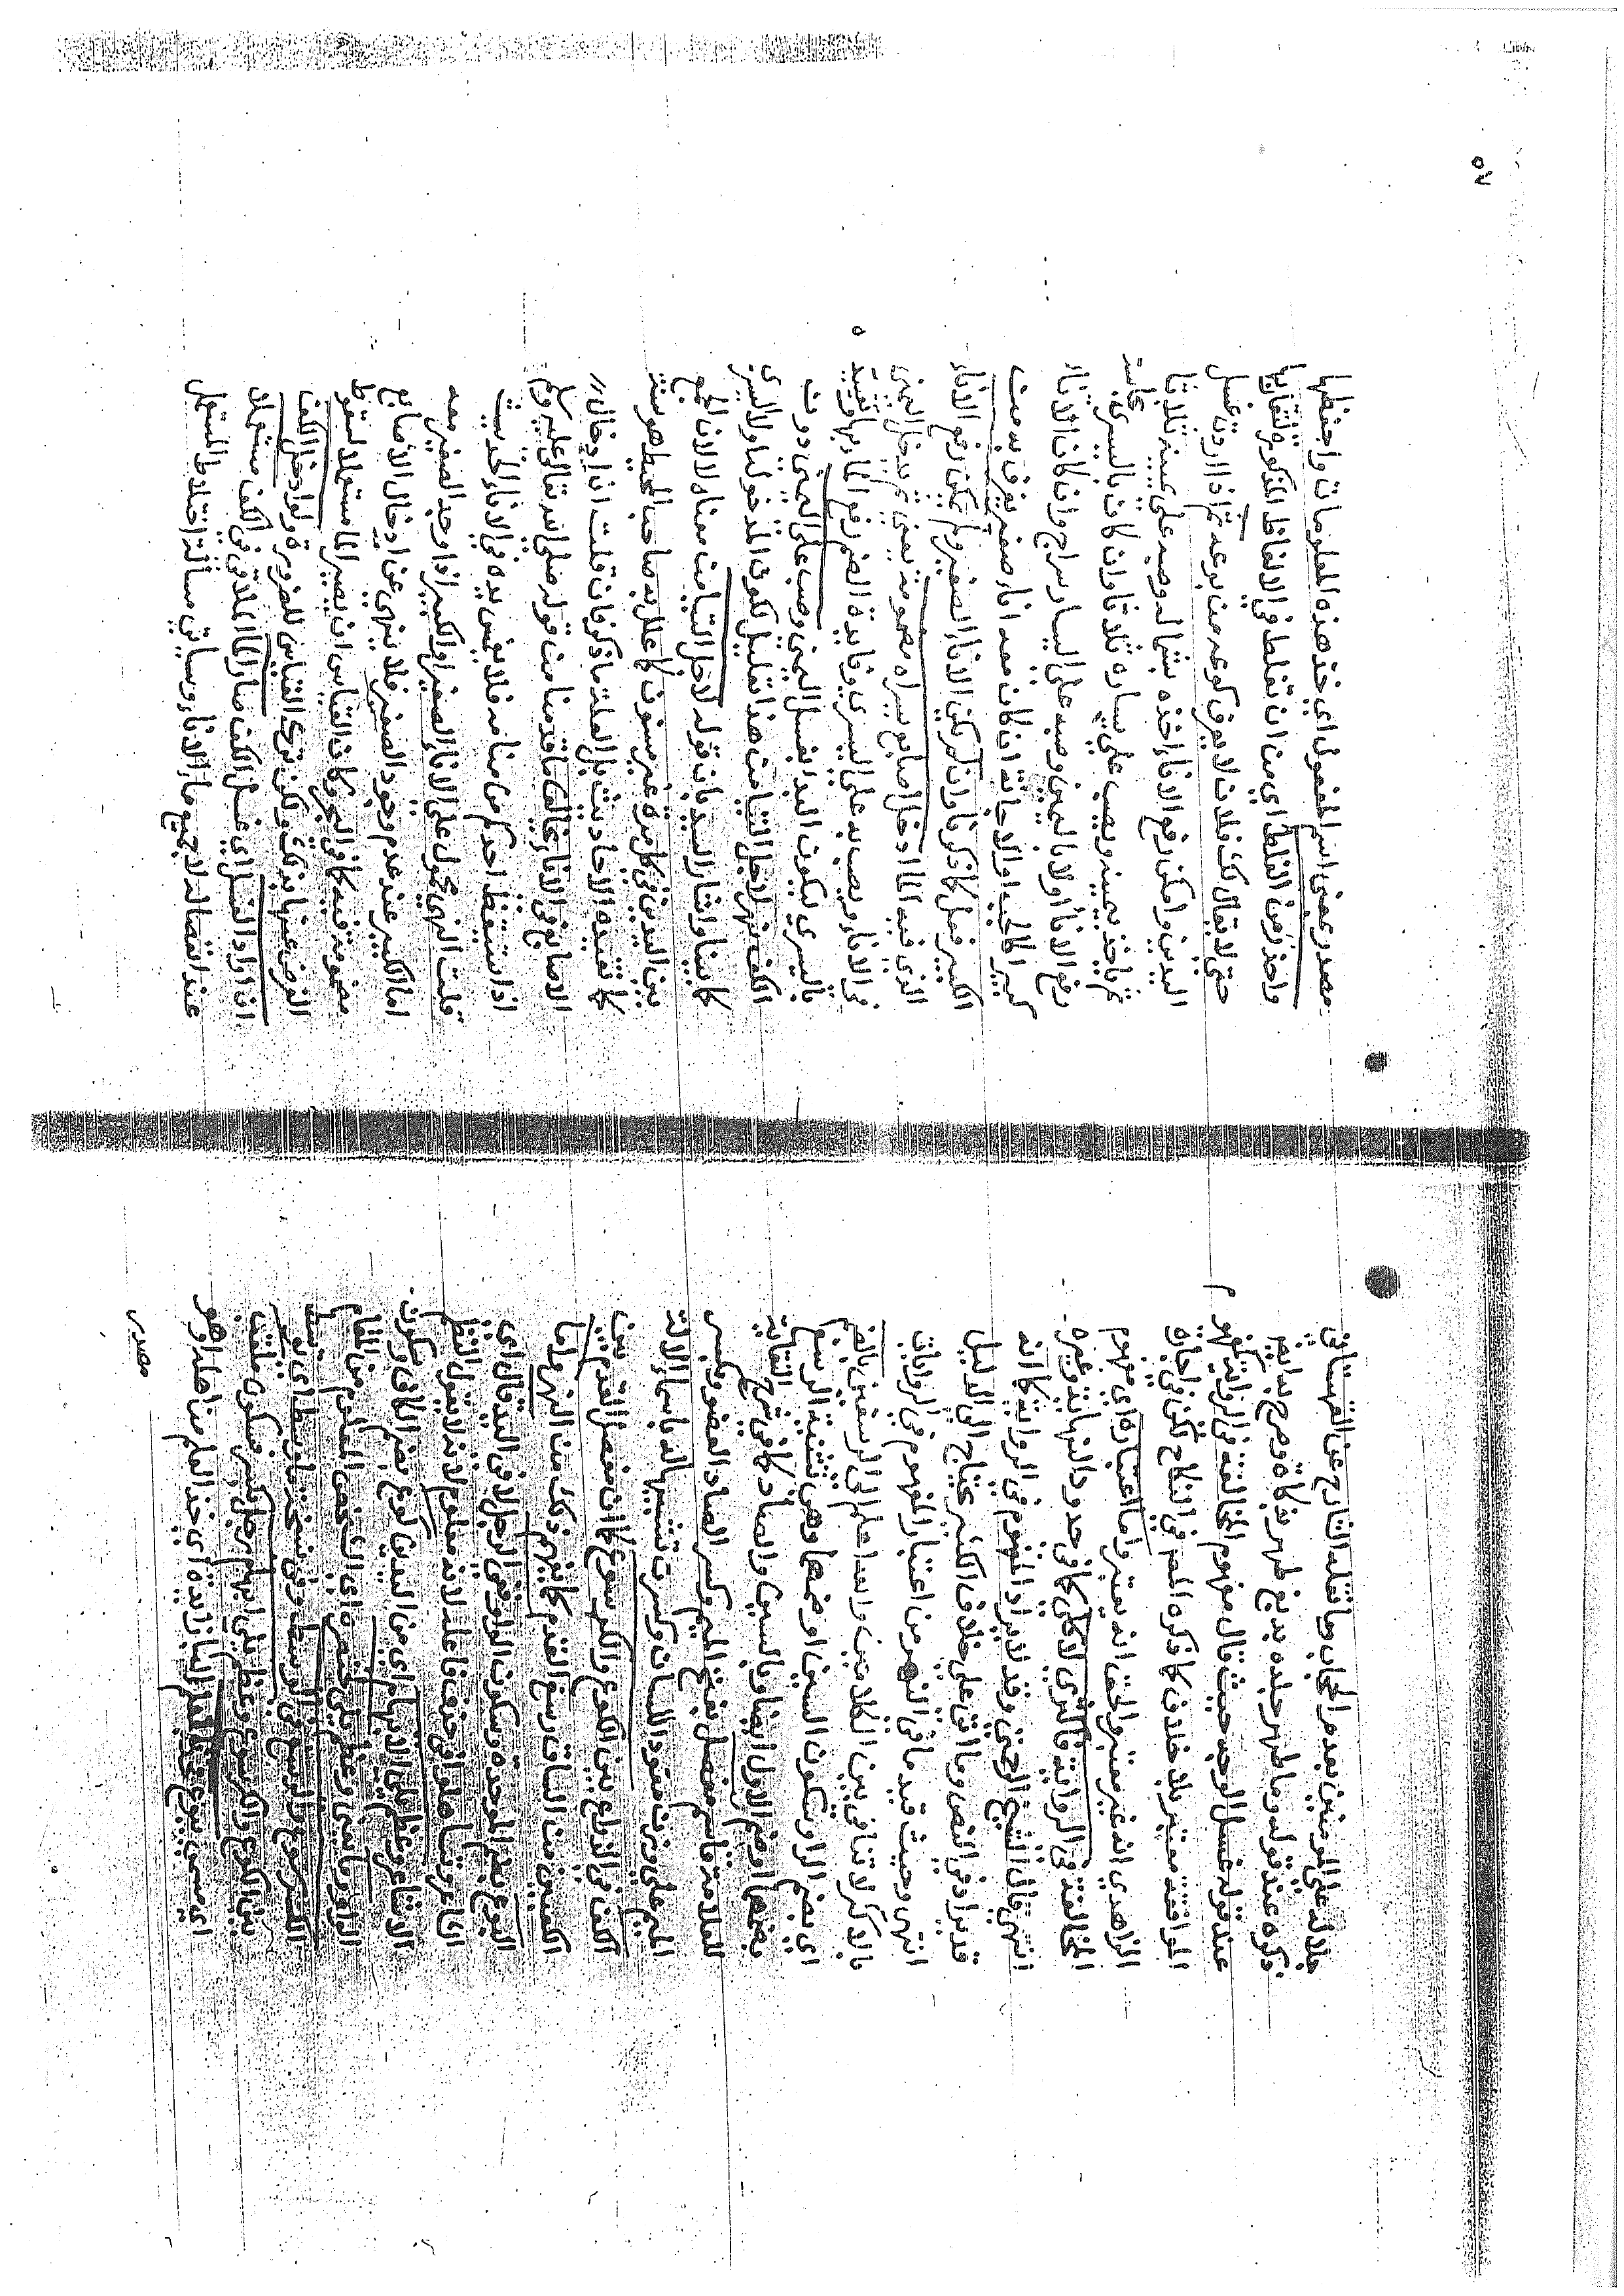 خلاله على المؤمنين بعدم الحجاب وما نقله الشارح عن القهستاني
ذكره عند قوله وما طهر جلده بدبغ طهر بذكاة وصرح به ايضا
عند قوله غسل الوجه حيث قال مفهوم المخالفة في الرواية كمفهوم
الموافقة معتبر بلا خلاف كما ذكره المص في النكاح لكن في اجارة
الزاهدي انه غير معتبر والحق انه يعتبر واما اعتباره اي مفهوم
المخالفة في الرواية فاكثري لا كلي كما في حدود النهاية وغيره
انتهى قال الشيخ الرحمتي وقد لا يراد المفهوم في الرواية كما انه
قد يراد في النص وما اتى على خلاف الكثير يحتاج الى الدليل
انتهى وحيث قيد ما في النهر من اعتبار المفهوم في الروايات
بالاكثر لا تنافي بين الكلامين والله اعلم الى الرسغين بالضم
اي بضم الراء وسكون السين او ضمها وهي تثنية الرسغ
بضمها وضم الاول ايضا وبالسين والصاد كما في شرح النقاية
للعلامة قاسم مفصل بفتح الميم وكسر الصاد العضو وبكسر
الميم على وزن مقود اللسان وكسرت تشبيها له باسم الالة
الكف في الذراع بين الكوع والكرسوع كما ان مفصل القدم بين
الكعبين من الساق رسغ القدم كما يفهم ذلك من النهر واما
البوع بضم الموحدة وسكون الواو ففي الرجل لا في اليد قال اي
الشاعر حذف فاعله لانه معلوم لانه لا يقول النظم
الا شاعر وعظم يلي الابهام اي من اليدين كوع بضم الكاف وسكون
الواو وما يلي اي وعظم يلي لخنصره اي الشخص المعلوم من المقام
الكرسوع والرسغ في الوسط وفي نسخة ما وسط اي توسط
بين الكوع والكرسوع وعظم يلي ابهام رجل بكسر فسكون ملقب
اي مسمى ببوع فخذ بالعلم الباء زايدة اي خذ العلم من اهله او هو
مصدر
٥٢
مصدر بمعنى اسم المفعول اي خذ هذه المعلومات واحفظها
واحذر من الغلط اي من ان تغلط في الالفاظ المذكورة لتقاربها
حتى لا يقال لك فلان لا يعرف كوعه من بوعه ثم اذا اردت غسل
اليدين وامكن رفع الاناء اخذه بشماله وصبه على يمينه ثلاثا
ثم ياخذه بيمينه ويصب على يساره ثلاثا وان كان باليسرى نجاسة
رفع الاناء اولا باليمين وصبه على اليسار سراج وان كان الاناء
كبيرا كالحب او الاجانة ان كان معه اناء صغير يغرف به من
الكبير فعل كما ذكرنا وان لم يكن الاناء الصغير ولم يمكن رفع الاناء
الذي فيه الماء ادخل اصابع يسراه مضمومة يعني ثم يدخل اليمنى
في الاناء ويصب به على اليسرى وفايدة الضم رفع الماء بها وتقييد
باليسرى ليكون البدء بغسل اليمنى وصب على اليمنى دون
الكف نهر لاجل التيامن هذا تعليل لكون المدخول به اولا اليسرى
كما بينا واشار السيد بان قوله لاجل التيامن معناه لا لان الجمع
بين اليدين في كل مرة غير مسنون كما علل به صاحب المحيط هو سنة
كما تفيده الاحاديث بل العلة ما ذكر فان قلت ان ادخال
الاصابع في الاناء يخالف ما قدمنا من قوله صلى الله تعالى عليه وسلم
اذا استيقظ احدكم من منامه فلا يغمس يده في الاناء الحديث
قلت النهي محمول على الاناء الصغير او الكبير اذا وجد الصغير معه
اما الكبير عند عدم وجود الصغير فلا ينهى عن ادخال الاصابع
مضمومة فيه كما في البحر وكان القياس ان يصير الماء مستعملا لسقوط
الفرض عنها بذلك ولكن ترك القياس للضرورة ولو ادخل الكف
ان اراد الغسل اي غسل الكف صار الماء الملاقي للكف مستعملا
عند انفصاله لا جميع ماء الاناء وسياتي مسألة اختلاط المستعمل